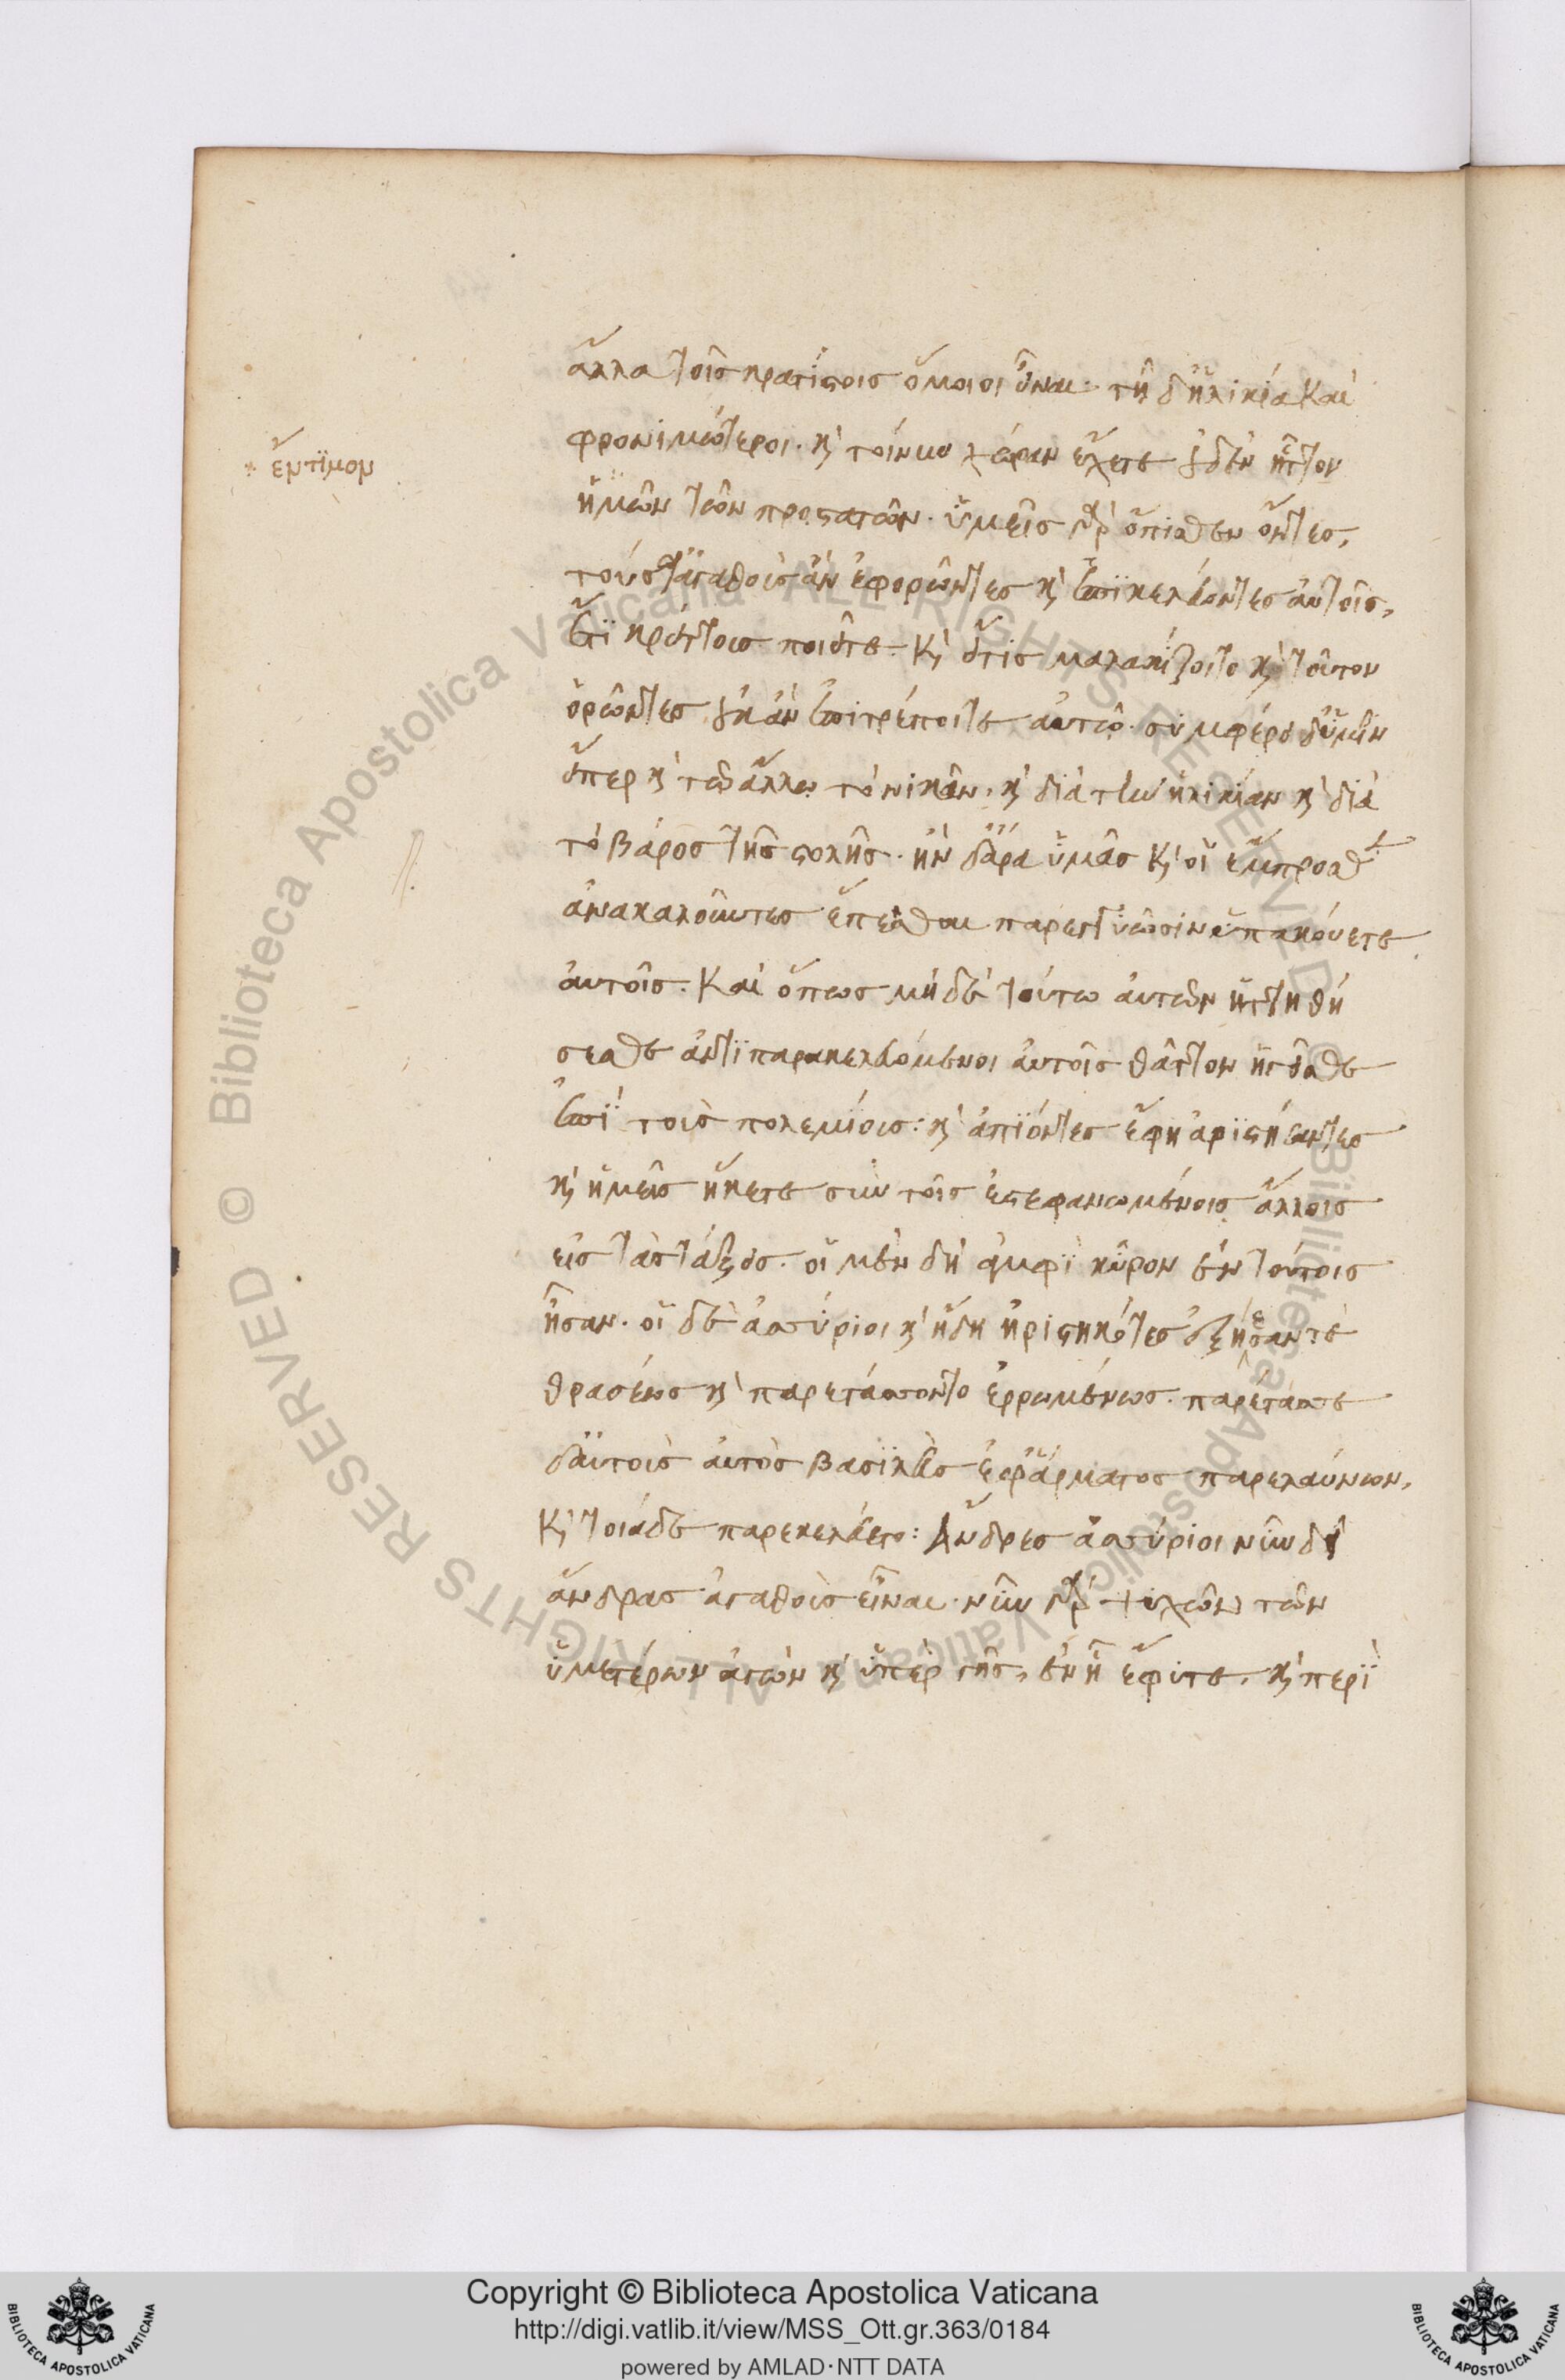 ἄλλα τοῖς κρατίστοις ὅμοιοι εἶναι· τῇ δ' ἡλικίᾳ καὶ
φρονιμώτεροι. κ' τοίνυν χώραν ἔχετε οὐδὲν ἧττον
* ἔντϊμον
ἡμῶν τῶν προστατῶν. ὑμεῖς γὰρ ὄπισθεν ὄντες,
τούς τ' ἀγαθοὺς ἂν ἐφορῶντες κ' ἐπϊκελεύοντες αὐτοῖς,
ἔτϊ κρείττους ποιεῖτε. κ' εἴ τις μαλακίζοιτο κ' τοῦτον
ὁρῶντες οὐκ ἂν ἐπιτρέποιτε αὐτῷ. συμφέρει δ' ὑμῖν
εἴπερ κ' τῷ ἄλλῳ τὸ νικᾶν, κ' διὰ τὴν ἡλικίαν κ' δϊὰ
τὸ βάρος τῆς στολῆς. ἢν δ' ἄρα ὑμᾶς κ' οἱ ἔμπροσθεν
ἀνακαλοῦντες ἕπεσθαι παρεγγυῶσιν ὑπακούετε
αὐτοῖς. καὶ ὅπως μηδὲ τούτῳ αὐτῶν ἡττηθή
σεσθε ἀντϊπαρακελευόμενοι αὐτοῖς θᾶττον ἡγεῖσθε
ἐπϊ τοὺς πολεμίους: κ' ἀπϊόντες ἔφη ἀρϊστήσαντες
κ' ὑμεῖς ἥκετε σὺν τοῖς ἐστεφανωμένοις ἄλλοις
εἰς τὰς τάξεις. οἱ μὲν δὴ ἀμφϊ κῦρον ἐν τούτοις
ἦσαν. οἱ δὲ ἀσσύριοι κ' ἤδη ἠριστηκότες ἐξῄεσαν τε
θρασέως κ' παρετάσσοντο ἐρρωμένως. παρέτασσε
δ' αὐτοὺς αὐτὸς βασϊλεὺς ἐφ' ἅρματος παρελαύνων,
κ' τοιάδε παρεκελεύετο: Ἄνδρες ἀσσύριοι νῦν δεῖ
ἄνδρας ἀγαθοὺς εἶναι· νῦν γὰρ ψυχῶν τῶν
ὑμετέρων ἀγών κ' ὑπὲρ γῆς, ἐν ᾗ ἔφυτε, κ' περϊ
Copyright © Biblioteca Apostolica Vaticana
http://digi.vatlib.it/view/MSS_Ott.gr.363/0184
powered by AMLAD·NTT DATA
BIBLIOTECA APOSTOLICA VATICANA
BIBLIOTECA APOSTOLICA VATICANA
© Biblioteca Apostolica Vaticana ALL RIGHTS RESERVED
© Biblioteca Apostolica Vaticana ALL RIGHTS RESERVED